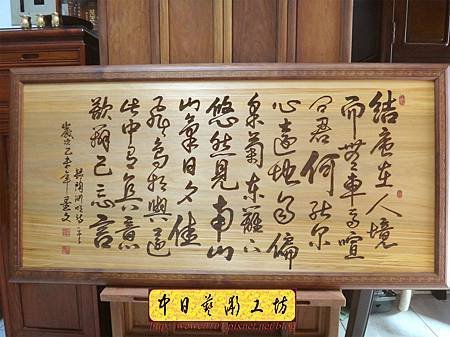 結廬在人境
而無車馬喧
問君何能爾
心遠地自偏
采菊東籬下
悠然見南山
山氣日夕佳
飛鳥相與還
此中有真意
欲辯已忘言
陶淵明詩
歲次己亥年
中日藝術工坊